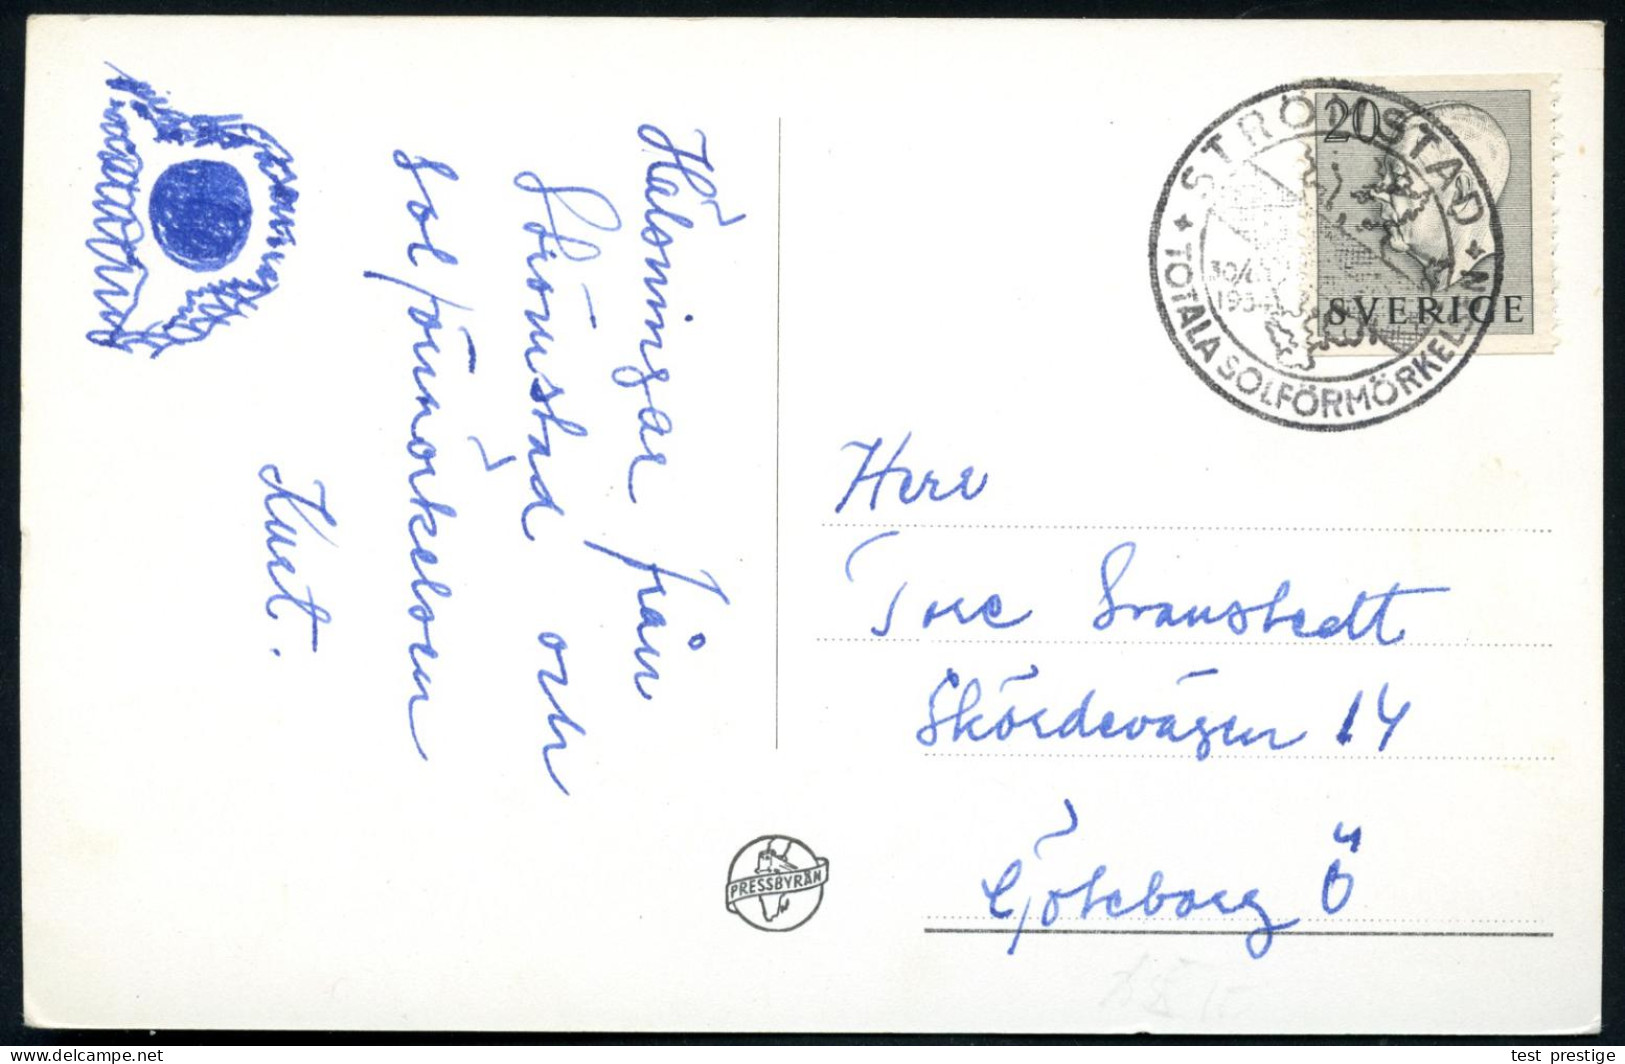 Hälsningar från
Strömstad och
solförmörkelsen
Kurt.
STRÖMSTAD
TOTALA SOLFÖRMÖRKELSEN
30/6
1954
20
SVERIGE
Herr
Tore Svanstedt
Skördevägen 14
Göteborg Ö
PRESSBYRÅN
test_prestige